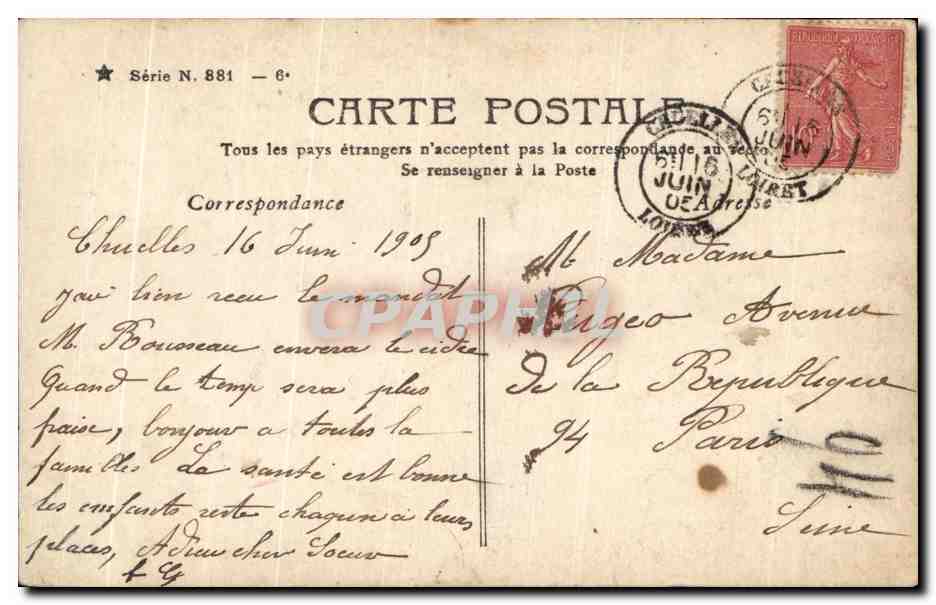 ★ Série N. 881 — 6.
CARTE POSTALE
Tous les pays étrangers n'acceptent pas la correspondance au recto
Se renseigner à la Poste
Correspondance
Adresse
REPUBLIQUE FRANÇAISE
6 16
JUIN
05
LOIRET
6 16
JUIN
05
LOIRET
Chuelles 16 Juin 1905
J'ai bien recu le mandat
M. Rousseau envera le cidre
Quand le temp sera plus
fraise, bonjour a toutes la
familles La santé est bonne
les enfants reste chaqun a leurs
places, Adieu cher Soeur
M. Madame
Avenue
de la Republique
94 Paris
Seine
CPAPHIL